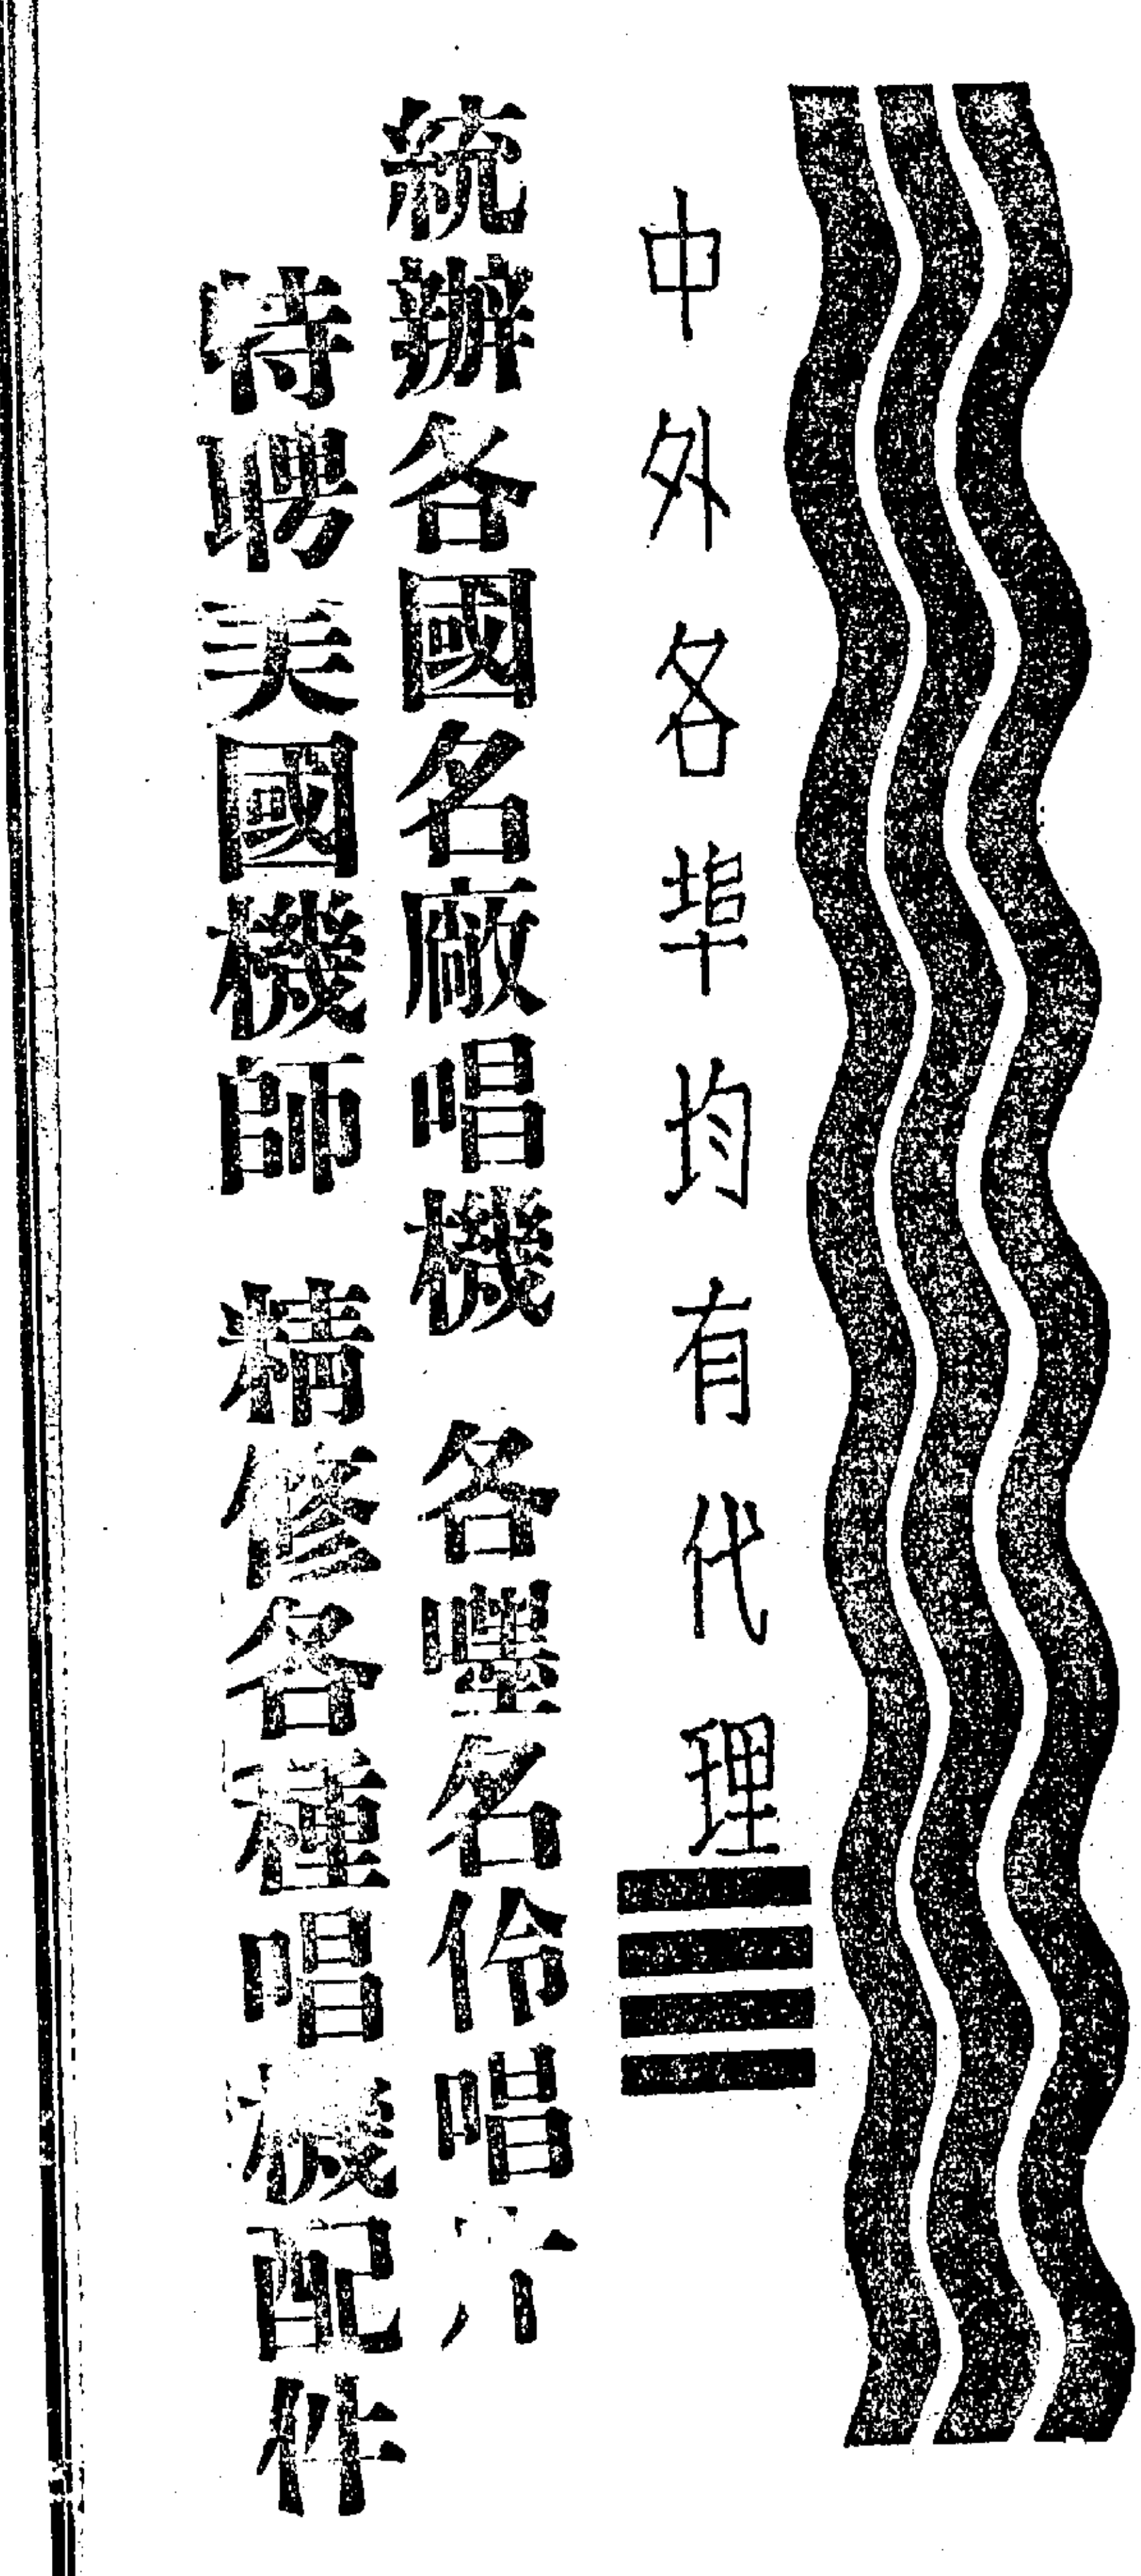 中外各埠均有代理
統辦各國名廠唱機 各嘜名伶唱片
特聘美國機師 精修各種唱機配件